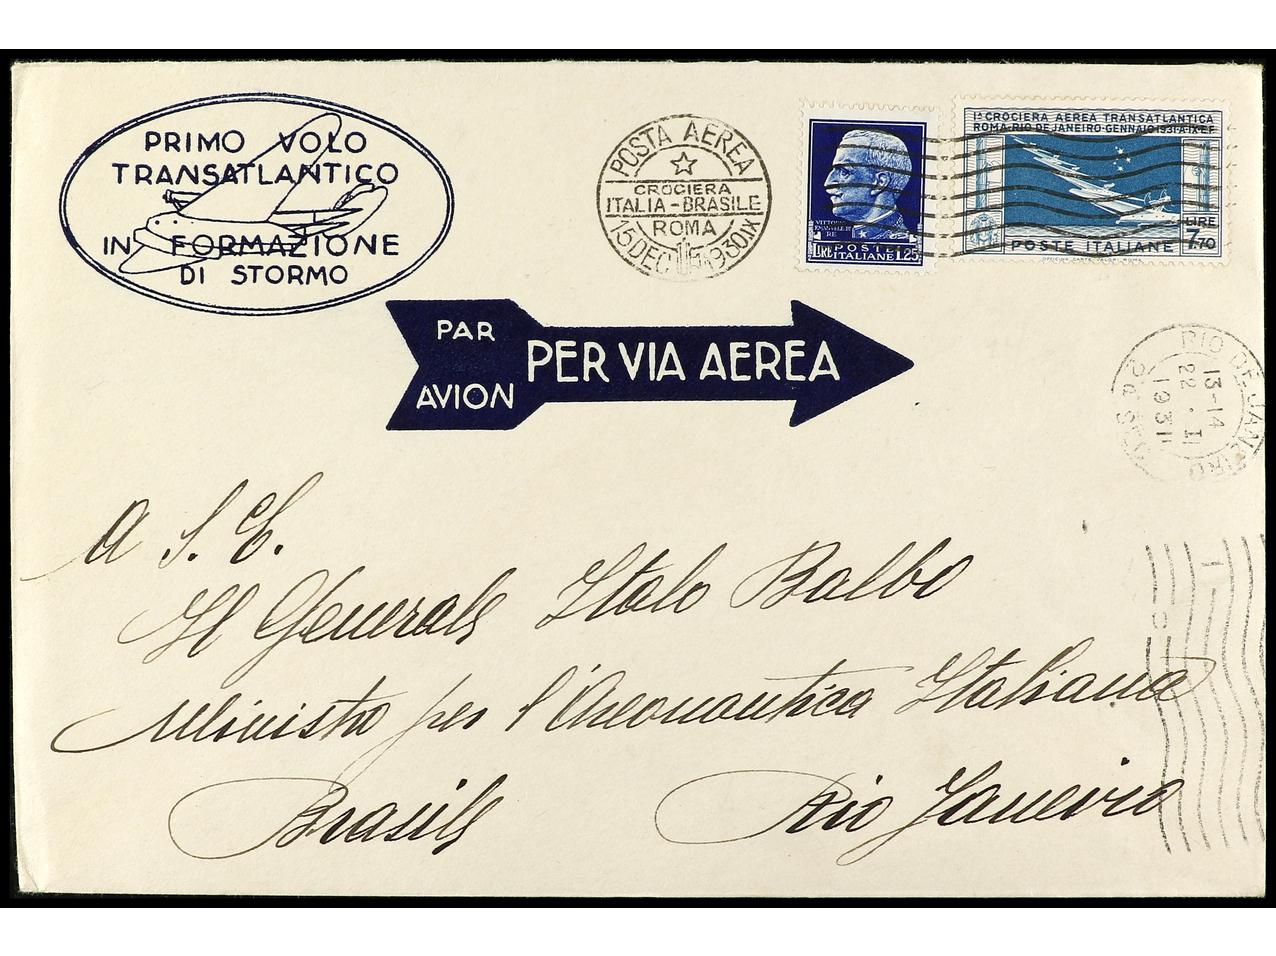 PRIMO VOLO
TRANSATLANTICO
IN FORMAZIONE
DI STORMO
POSTA AEREA
CROCIERA
ITALIA-BRASILE
ROMA
15 DEC 1930 IX
VITTORIO
EMANUELE III
RE
LIRE POSTE ITALIANE 1.25
1ª CROCIERA AEREA TRANSATLANTICA
ROMA·RIO DE JANEIRO·GENNAIO·1931·A·IX·E.F.
LIRE
7,70
POSTE ITALIANE
PAR
AVION
PER VIA AEREA
RIO DE JANEIRO
13-14
22.II
1931
A S. E.
Il Generale Italo Balbo
Ministro per l'Aeronautica Italiana
Brasile Rio Janeiro